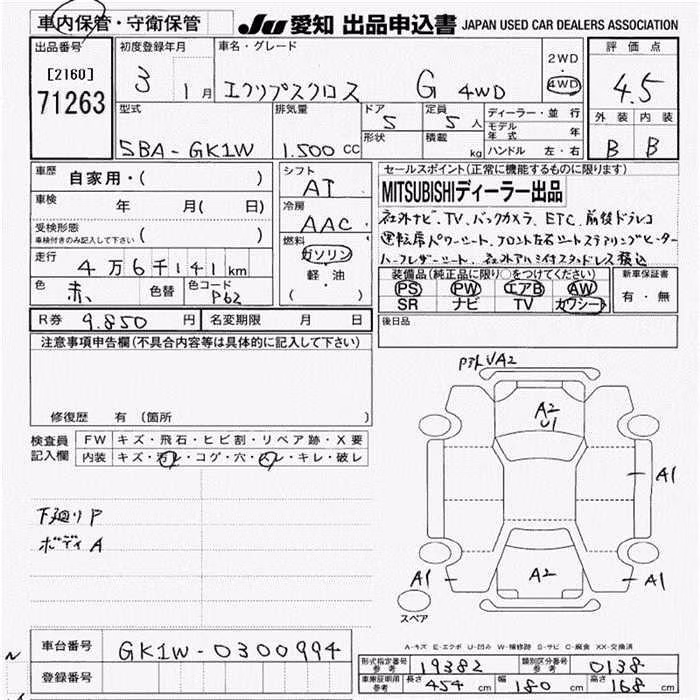 車内保管・守衛保管 JU 愛知 出品申込書 JAPAN USED CAR DEALERS ASSOCIATION
出品番号 初度登録年月 車名・グレード 評価点
[2160] 3 1月 エクリプスクロス G 4WD 2WD・4WD 4.5
71263
型式 排気量 ドア 定員 ディーラー・並行 外装 内装
5 5人 モデル年式 年
形状 積載 kg ハンドル 左・右
5BA-GK1W 1.500CC B B
車歴 自家用・( ) シフト AT セールスポイント(正常に機能するものに限ります)
MITSUBISHIディーラー出品
車検 年 月( 日) 冷房 AAC 社外ナビ、TV、バックカメラ、ETC、前後ドラレコ
受検形態 車検付きのみ記入して下さい ( ) 燃料 ガソリン 運転席パワーシート、フロント左右シートステアリングヒーター
走行 4万6千141km 軽・油 ハーフレザーシート、社外アルミ付スタッドレス積込
色 赤 色替 色コード P62 ( ) 装備品(純正品に限り○をつけてください) 新車保証書
PS PW エアB AW 有・無
SR ナビ TV カワシート
R券 9.850円 名変期限 月 日 後日品
注意事項申告欄(不具合内容等は具体的に記入して下さい)
修復歴 有 (箇所 )
検査員記入欄 FW キズ・飛石・ヒビ割・リペア跡・X要
内装 キズ・汚レ・コゲ・穴・ハレ・キレ・破レ
下廻りP
ボディA
A2
U1
A1
A2
A1
A1
スペア
A-キズ E-エクボ U-凹み W-補修跡 S-サビ C-腐食 XX-交換済
車台番号 GK1W-0300994
登録番号
型式指定番号 参考 19382 類別区分番号 参考 0138
車庫証明用 参考 長さ 454cm 幅 180cm 高さ 168cm